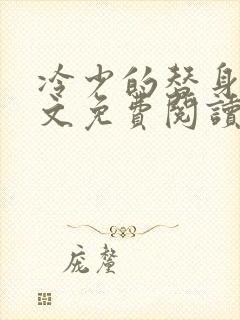 冷少的替身
文免費閱讀
庞簦